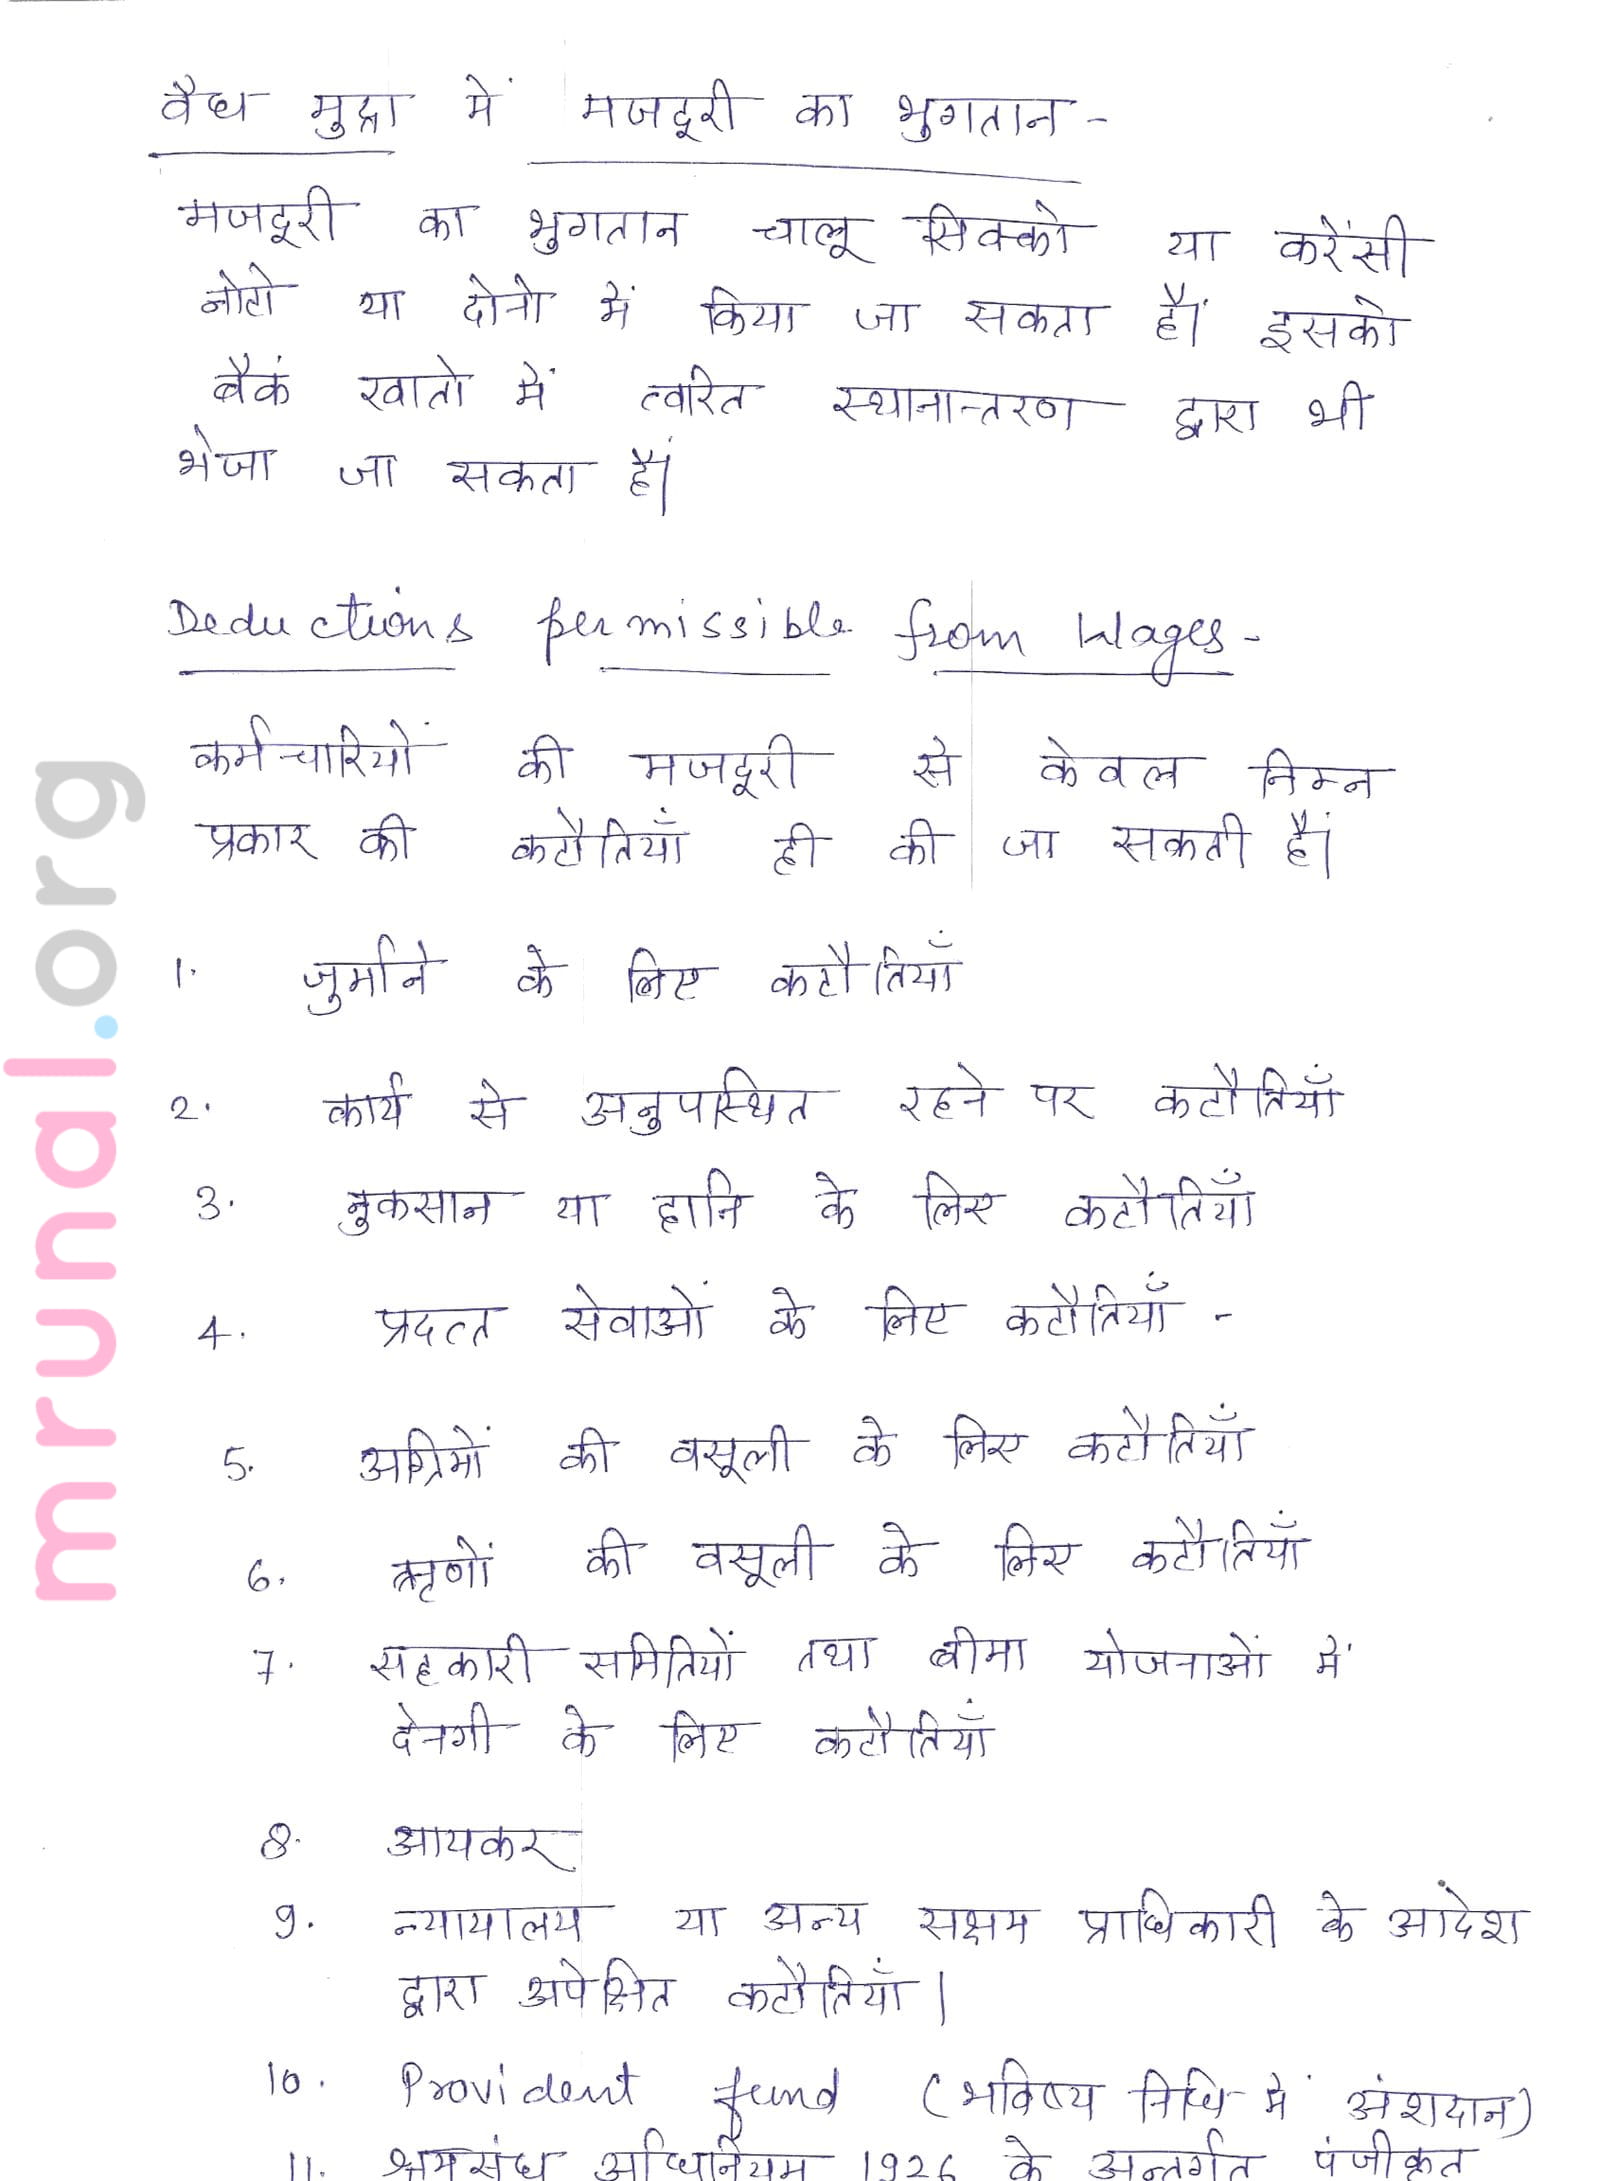 वैध मुद्रा में मजदूरी का भुगतान -
मजदूरी का भुगतान चालू सिक्को या करेंसी
नोटो या दोनो में किया जा सकता हैं। इसको
बैकं खातो में त्वरित स्थानान्तरण द्वारा भी
भेजा जा सकता हैं।
Deductions permissible from Wages -
कर्मचारियों की मजदूरी से केवल निम्न
प्रकार की कटौतियाँ ही की जा सकती हैं।
1. जुर्माने के लिए कटौतियाँ
2. कार्य से अनुपस्थित रहने पर कटौतियाँ
3. नुकसान या हानि के लिए कटौतियाँ
4. प्रदत्त सेवाओं के लिए कटौतियाँ -
5. अग्रिमों की वसूली के लिए कटौतियाँ
6. ऋणों की वसूली के लिए कटौतियाँ
7. सहकारी समितियों तथा बीमा योजनाओं में
देनगी के लिए कटौतियाँ
8. आयकर
9. न्यायालय या अन्य सक्षम प्राधिकारी के आदेश
द्वारा अपेक्षित कटौतियाँ।
10. Provident fund (भविष्य निधि में अंशदान)
11. श्रमसंघ अधिनियम 1926 के अन्तर्गत पंजीकृत
mrunal.org